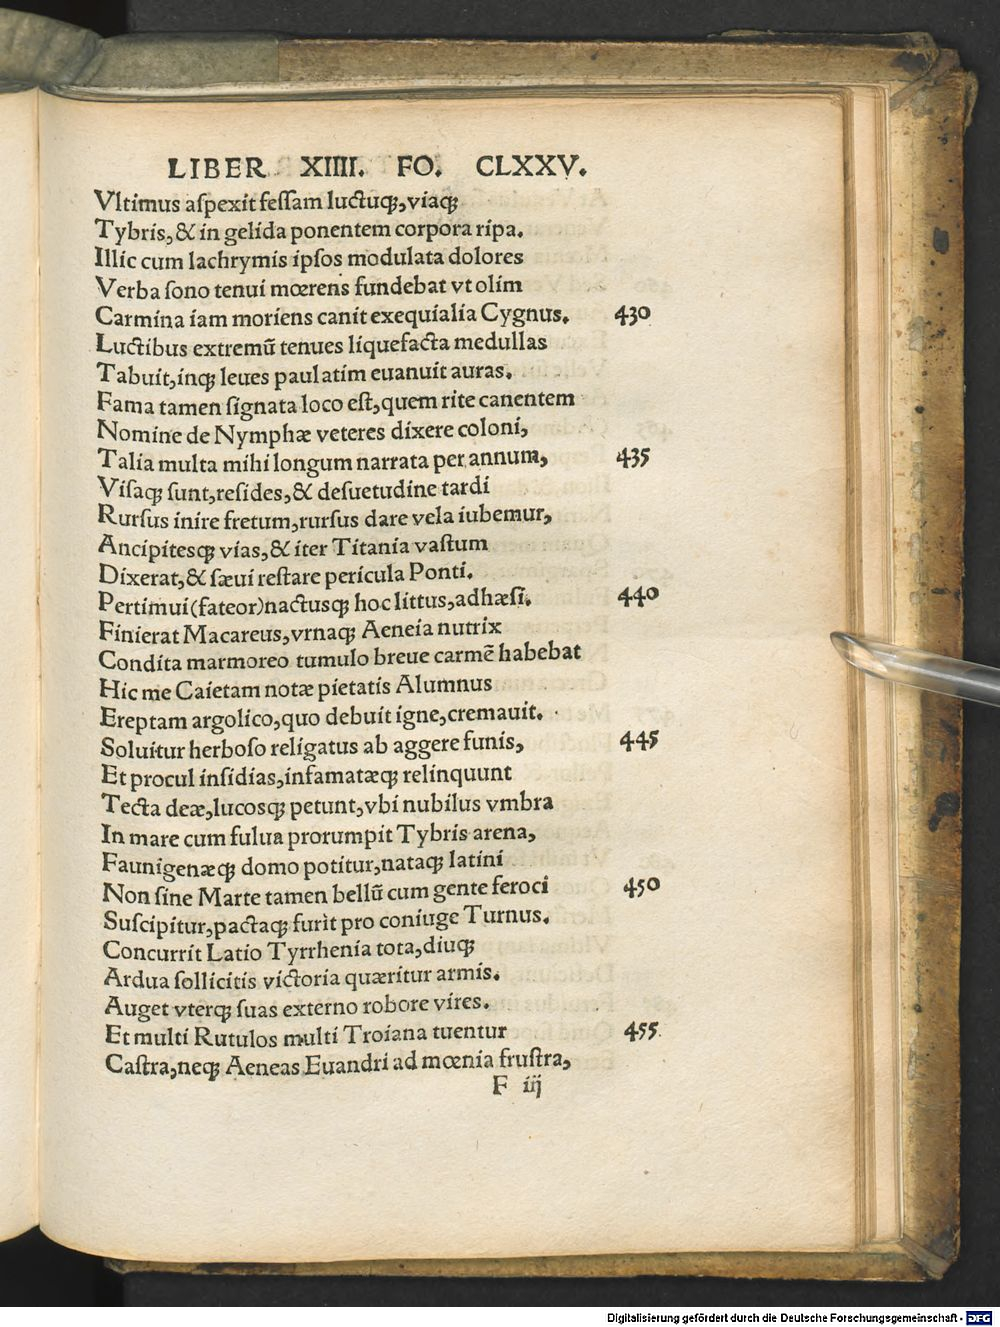 LIBER XIIII. FO. CLXXV.
Vltimus aſpexit feſſam luctuqꝫ,viaqꝫ
Tybris,& in gelida ponentem corpora ripa.
Illic cum lachrymis ipſos modulata dolores
Verba ſono tenui mœrens fundebat vt olim
Carmina iam moriens canit exequialia Cygnus. 430
Luctibus extremū tenues liquefacta medullas
Tabuit,inqꝫ leues paulatim euanuit auras.
Fama tamen ſignata loco eſt,quem rite canentem
Nomine de Nymphæ veteres dixere coloni,
Talia multa mihi longum narrata per annum, 435
Viſaqꝫ ſunt,reſides,& deſuetudine tardi
Rurſus inire fretum,rurſus dare vela iubemur,
Ancipitesqꝫ vias,& iter Titania vaſtum
Dixerat,& ſæui reſtare pericula Ponti.
Pertimui(fateor)nactusqꝫ hoc littus,adhæſi. 440
Finierat Macareus,vrnaqꝫ Aeneia nutrix
Condita marmoreo tumulo breue carmē habebat
Hic me Caietam notæ pietatis Alumnus
Ereptam argolico,quo debuit igne,cremauit.
Soluitur herboſo religatus ab aggere funis, 445
Et procul inſidias,infamatæqꝫ relinquunt
Tecta deæ,lucosqꝫ petunt,vbi nubilus vmbra
In mare cum fulua prorumpit Tybris arena,
Faunigenæqꝫ domo potitur,nataqꝫ latini
Non ſine Marte tamen bellū cum gente feroci 450
Suſcipitur,pactaqꝫ furit pro coniuge Turnus.
Concurrit Latio Tyrrhenia tota,diuqꝫ
Ardua ſollicitis victoria quæritur armis.
Auget vterqꝫ ſuas externo robore vires.
Et multi Rutulos multi Troiana tuentur 455
Caſtra,neqꝫ Aeneas Euandri ad mœnia fruſtra,
F iij
Digitalisierung gefördert durch die Deutsche Forschungsgemeinschaft - DFG